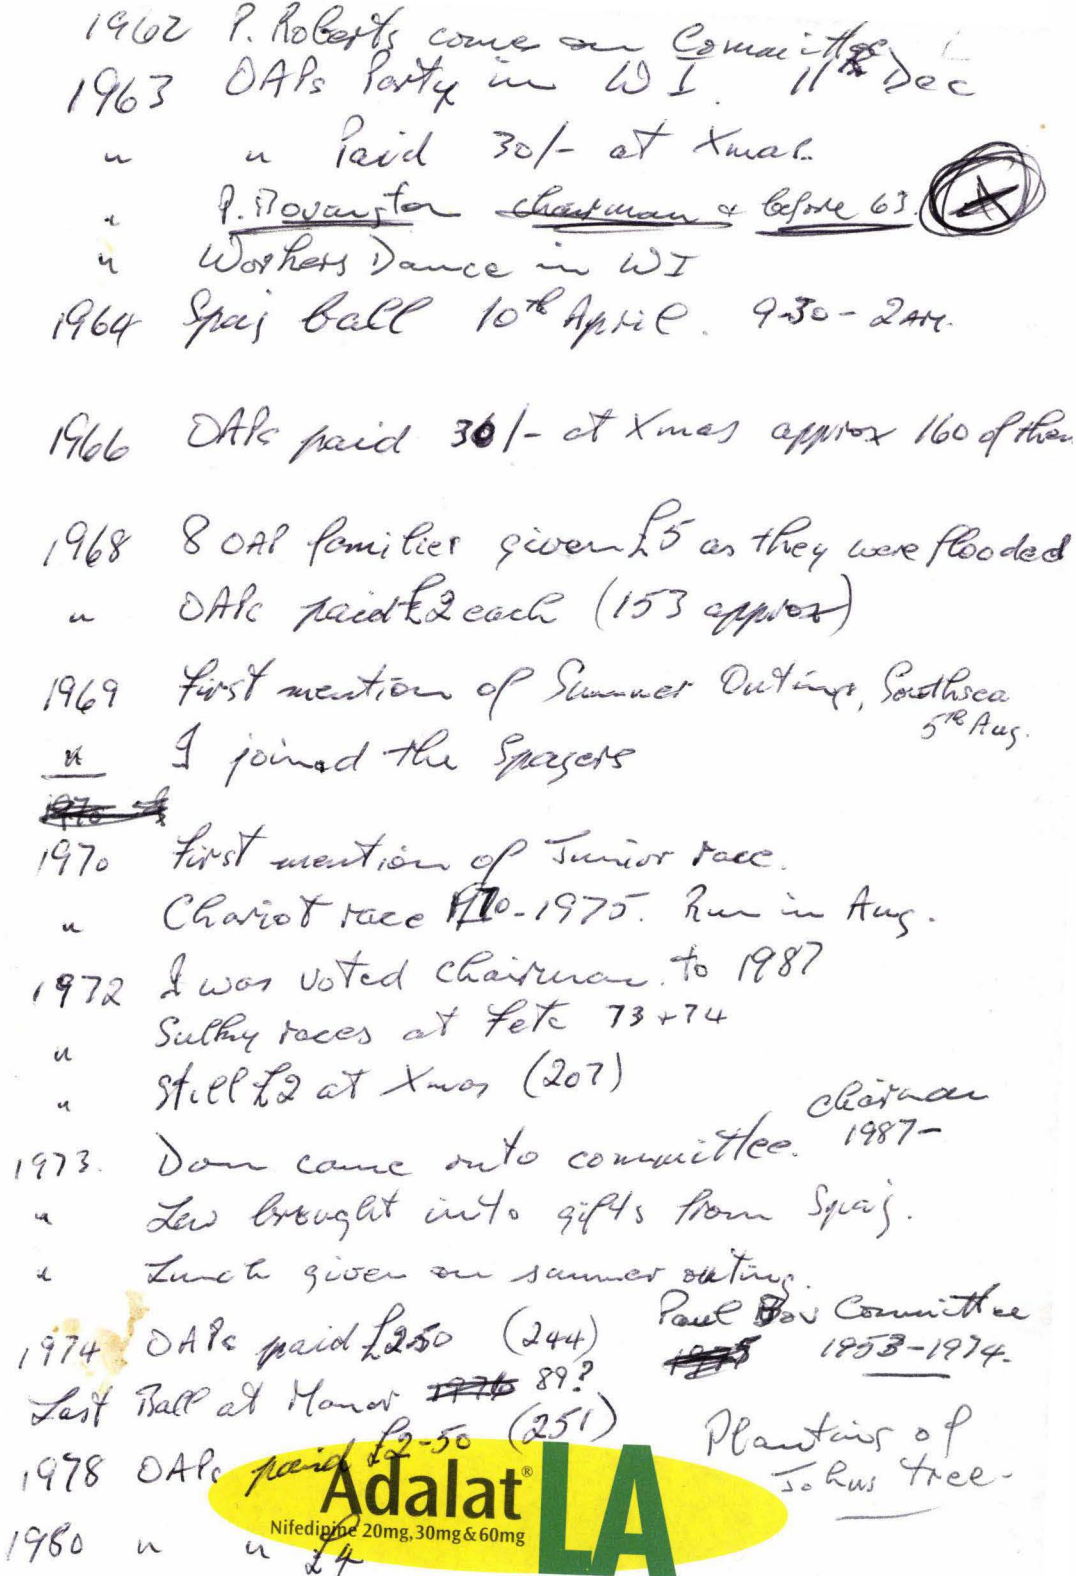 1962 P. Roberts come on Committee
1963 OAPs Party in WI. 11th Dec
" " Paid 30/- at Xmas.
" P. Bovington chairman & before 63.
" Workers Dance in WI
1964 Spaj ball 10th April. 9-30 - 2 AM.
1966 OAPs paid 30/- at Xmas approx 160 of them
1968 8 OAP families given £5 as they were flooded
" OAPs paid £2 each (153 approx)
1969 First mention of Summer Outings, Southsea
5th Aug.
" I joined the Spagers
1970
1970 First mention of Junior race.
" Chariot race 1970-1975. Run in Aug.
1972 I was voted chairman. to 1987
" Sulky races at Fete 73+74
" Still £2 at Xmas (207)
chairman
1987-
1973. Dom came onto committee.
" Law brought into gifts from Spaj.
" Lunch given on summer outing.
Paul Bov Committee
1974 OAPs paid £2.50 (244) 1975 1953-1974.
Last Ball at Manor 1976 89?
1978 OAPs paid £2-50 (251)
Planting of
Johns tree-
Adalat® LA
Nifedipine 20mg, 30mg & 60mg
1980 " " £4